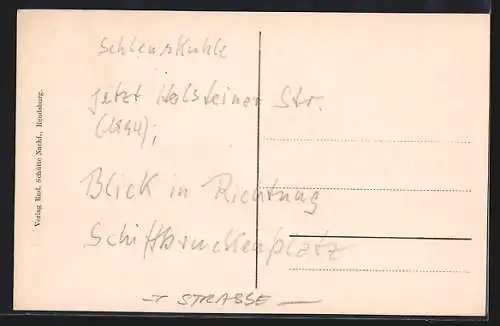 Schleuskuhle
jetzt Holsteiner Str.
(1994);
Blick in Richtung
Schiffbrückenplatz
STRASSE
Verlag Rud. Schütte Nachf., Rendsburg.